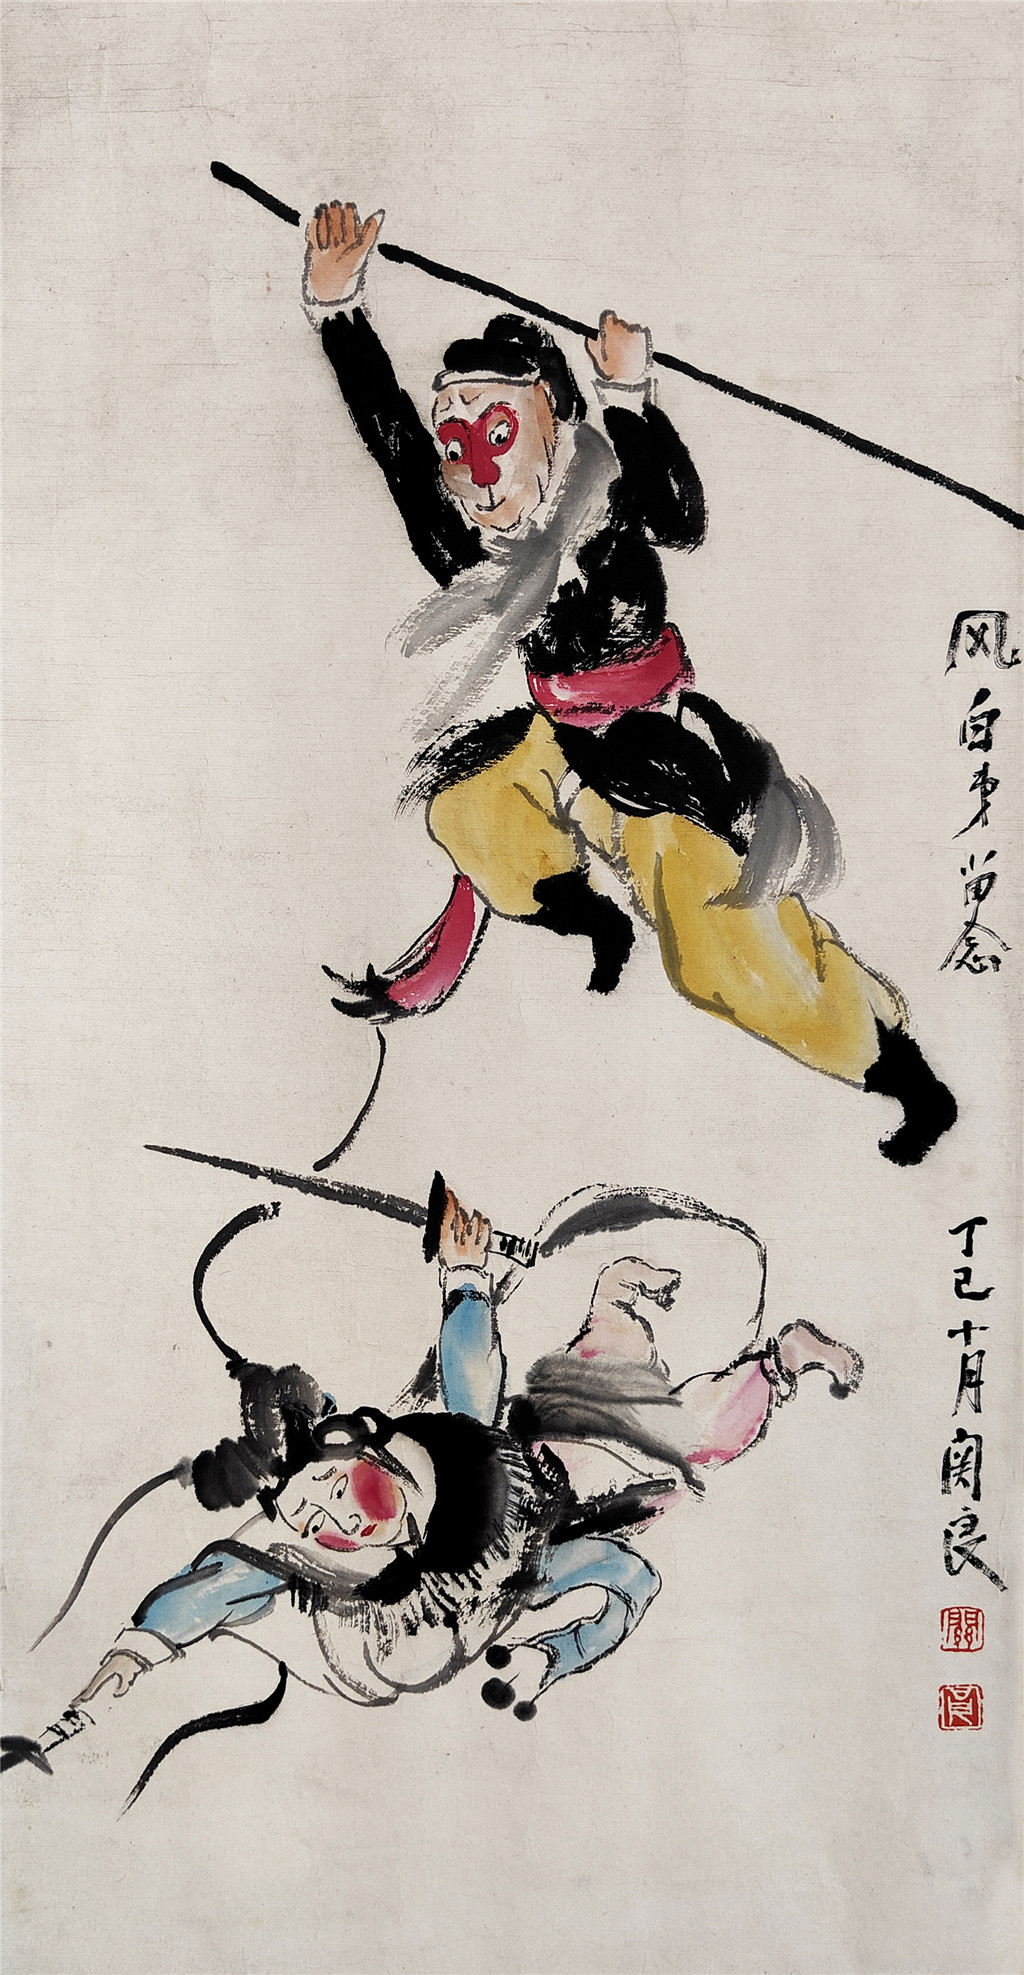 风白弟留念
丁巳十月关良
關
良